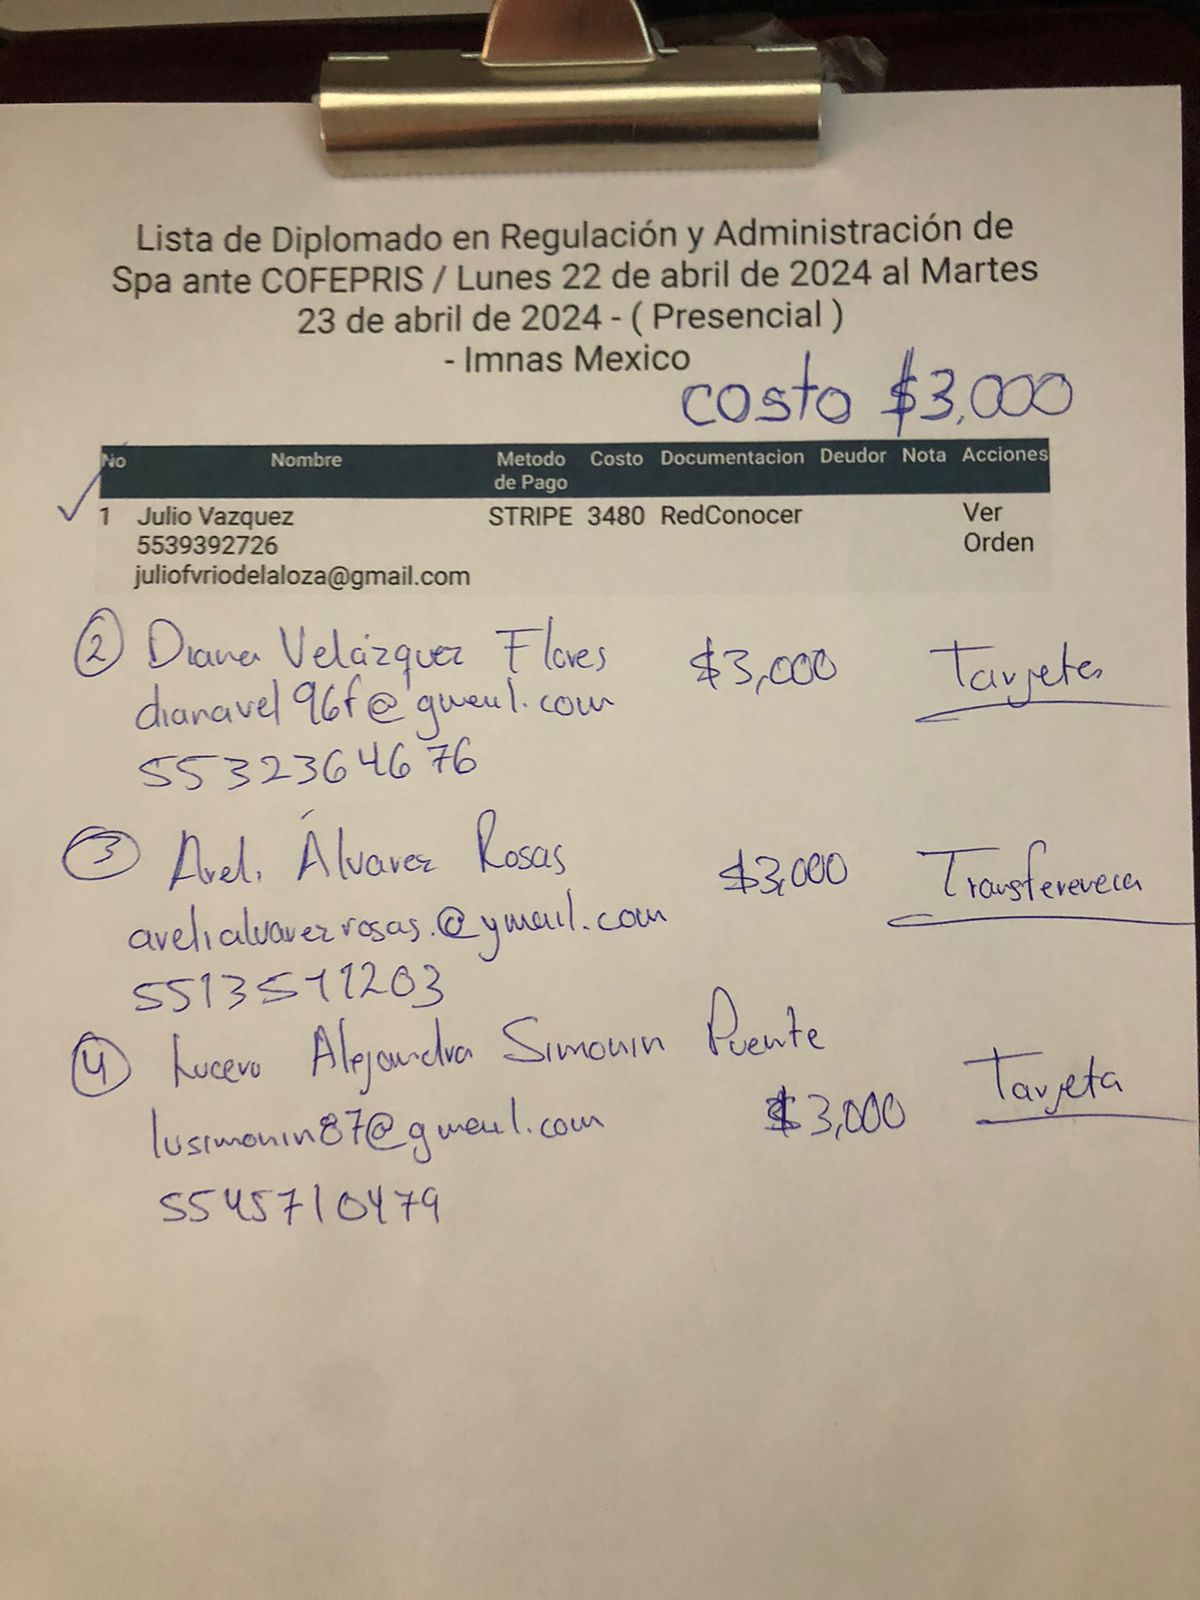 Lista de Diplomado en Regulación y Administración de
Spa ante COFEPRIS / Lunes 22 de abril de 2024 al Martes
23 de abril de 2024 - ( Presencial )
- Imnas Mexico
costo $3,000
No Nombre Metodo de Pago Costo Documentacion Deudor Nota Acciones
1 Julio Vazquez STRIPE 3480 RedConocer Ver
5539392726 Orden
juliofvriodelaloza@gmail.com
2 Diana Velázquez Flores $3,000 Tarjeta
dianavel96f@gmail.com
5532364676
3 Areli Álvarez Rosas $3,000 Transferencia
arelialvarezrosas.@ymail.com
5513511203
4 Lucero Alejandra Simonin Puente
lusimonin87@gmail.com $3,000 Tarjeta
5545710479